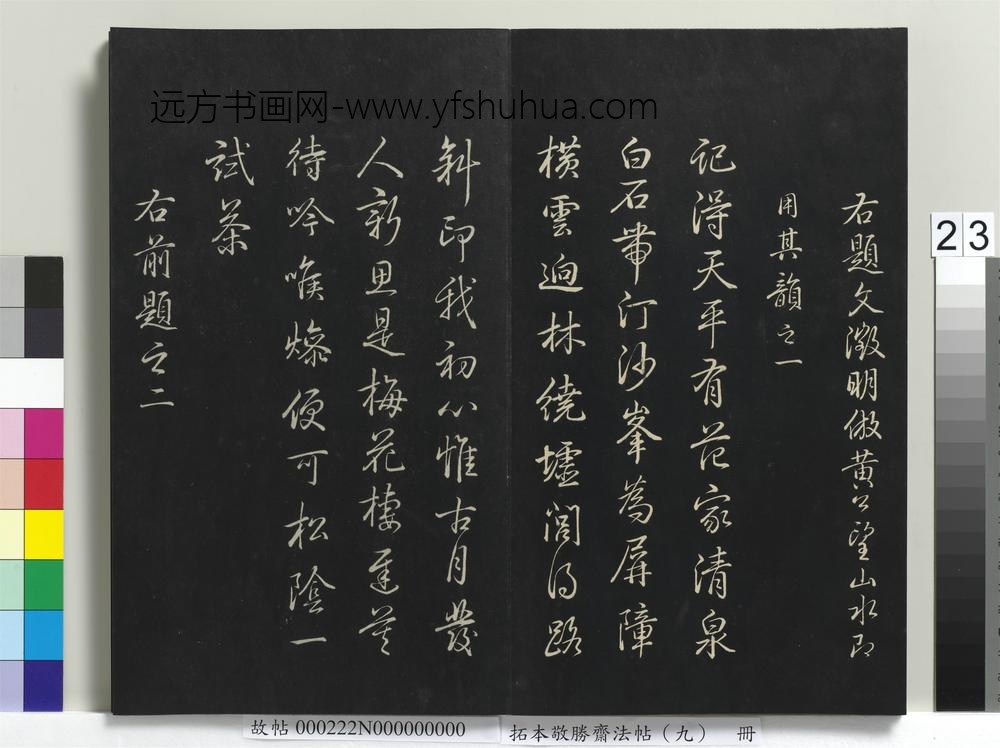 远方书画网-www.yfshuhua.com
右題文徵明倣黃公望山水即
用其韻之一
記得天平有范家清泉
白石帶汀沙峯為屏障
橫雲迥林繞墟閭得路
斜印我初心惟古月發
人新思是梅花棲遲莫
待吟喉燥便可松陰一
試茶
右前題之二
23
故帖 000222N000000000
拓本敬勝齋法帖(九) 冊